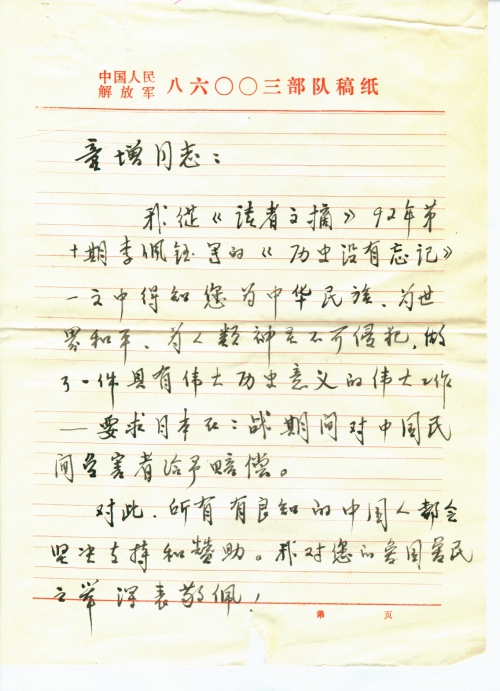 中国人民
解放军 八六〇〇三部队稿纸
童增同志：
我从《读者文摘》92年第
十期李佩钰写的《历史没有忘记》
一文中得知您为中华民族、为世
界和平、为人类神圣不可侵犯，做
了一件具有伟大历史意义的伟大工作
——要求日本在二战期间对中国民
间受害者给予赔偿。
对此，所有有良知的中国人都会
坚决支持和赞助。我对您的爱国爱民
之举深表敬佩！
第 页